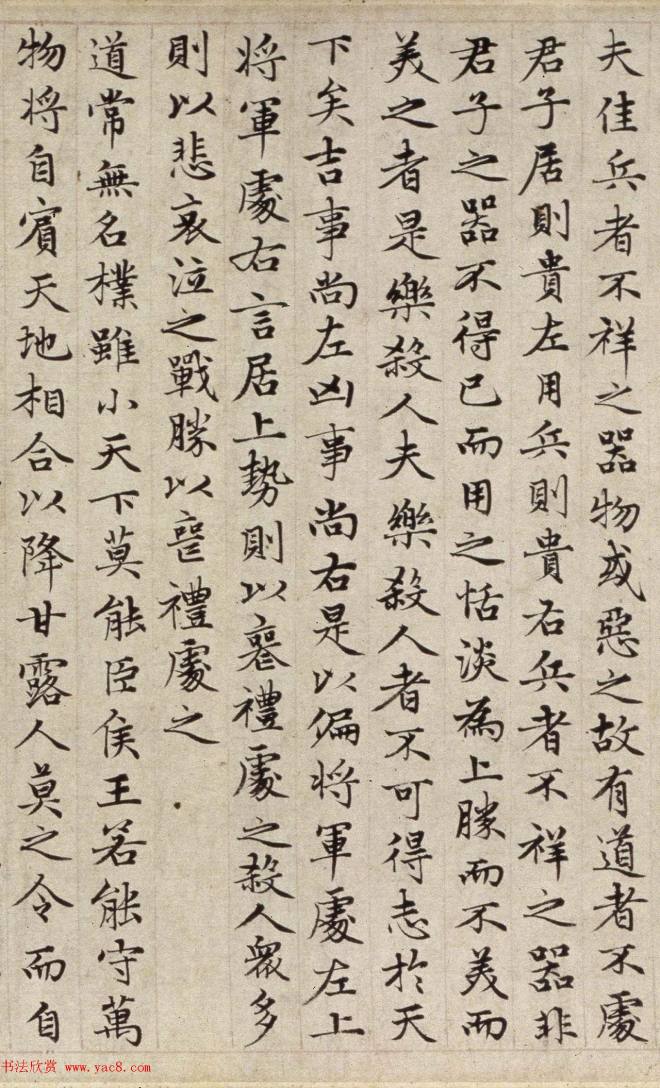 夫佳兵者不祥之器物或惡之故有道者不處
君子居則貴左用兵則貴右兵者不祥之器非
君子之器不得已而用之恬淡為上勝而不美而
美之者是樂殺人夫樂殺人者不可得志於天
下矣吉事尚左凶事尚右是以偏將軍處左上
將軍處右言居上勢則以喪禮處之殺人眾多
則以悲哀泣之戰勝以喪禮處之
道常無名樸雖小天下莫能臣侯王若能守萬
物將自賓天地相合以降甘露人莫之令而自
书法欣赏 www.yac8.com